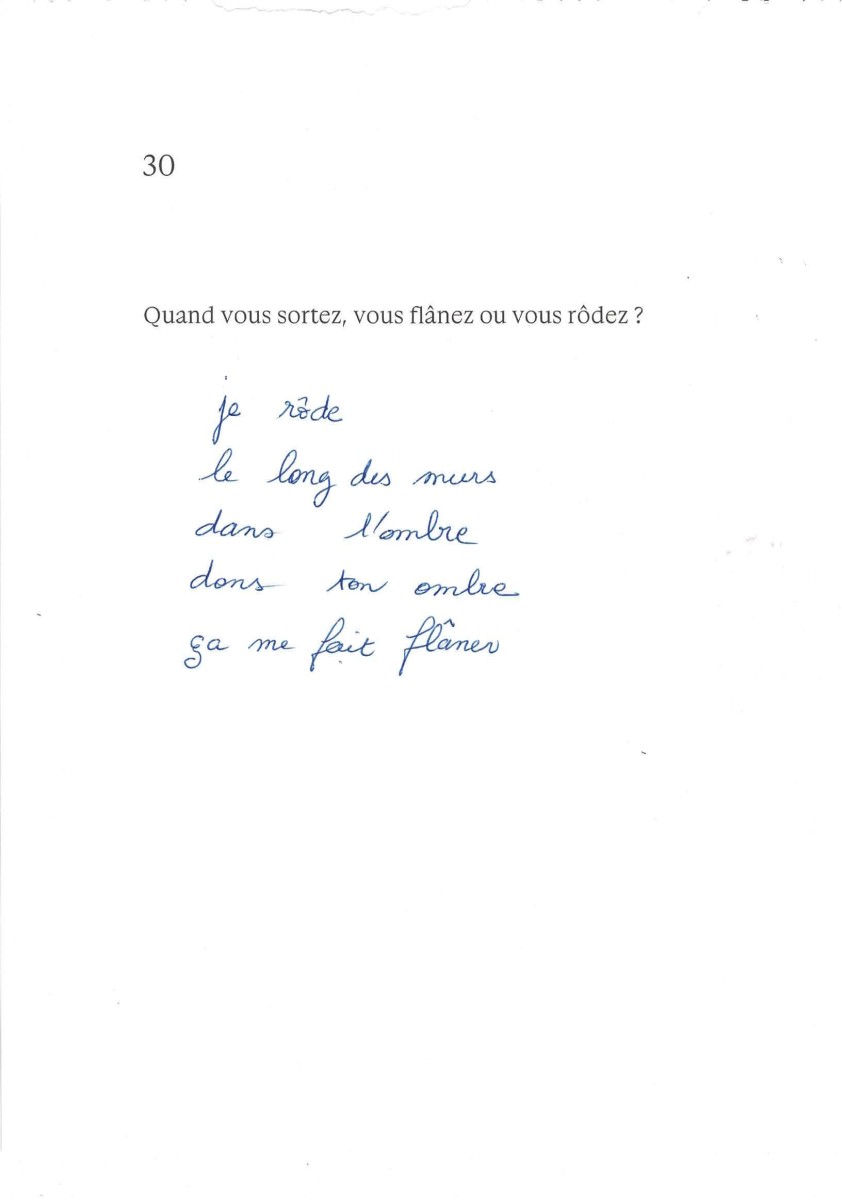 30
Quand vous sortez, vous flânez ou vous rôdez ?
je rôde
le long des murs
dans l'ombre
dans ton ombre
ça me fait flâner